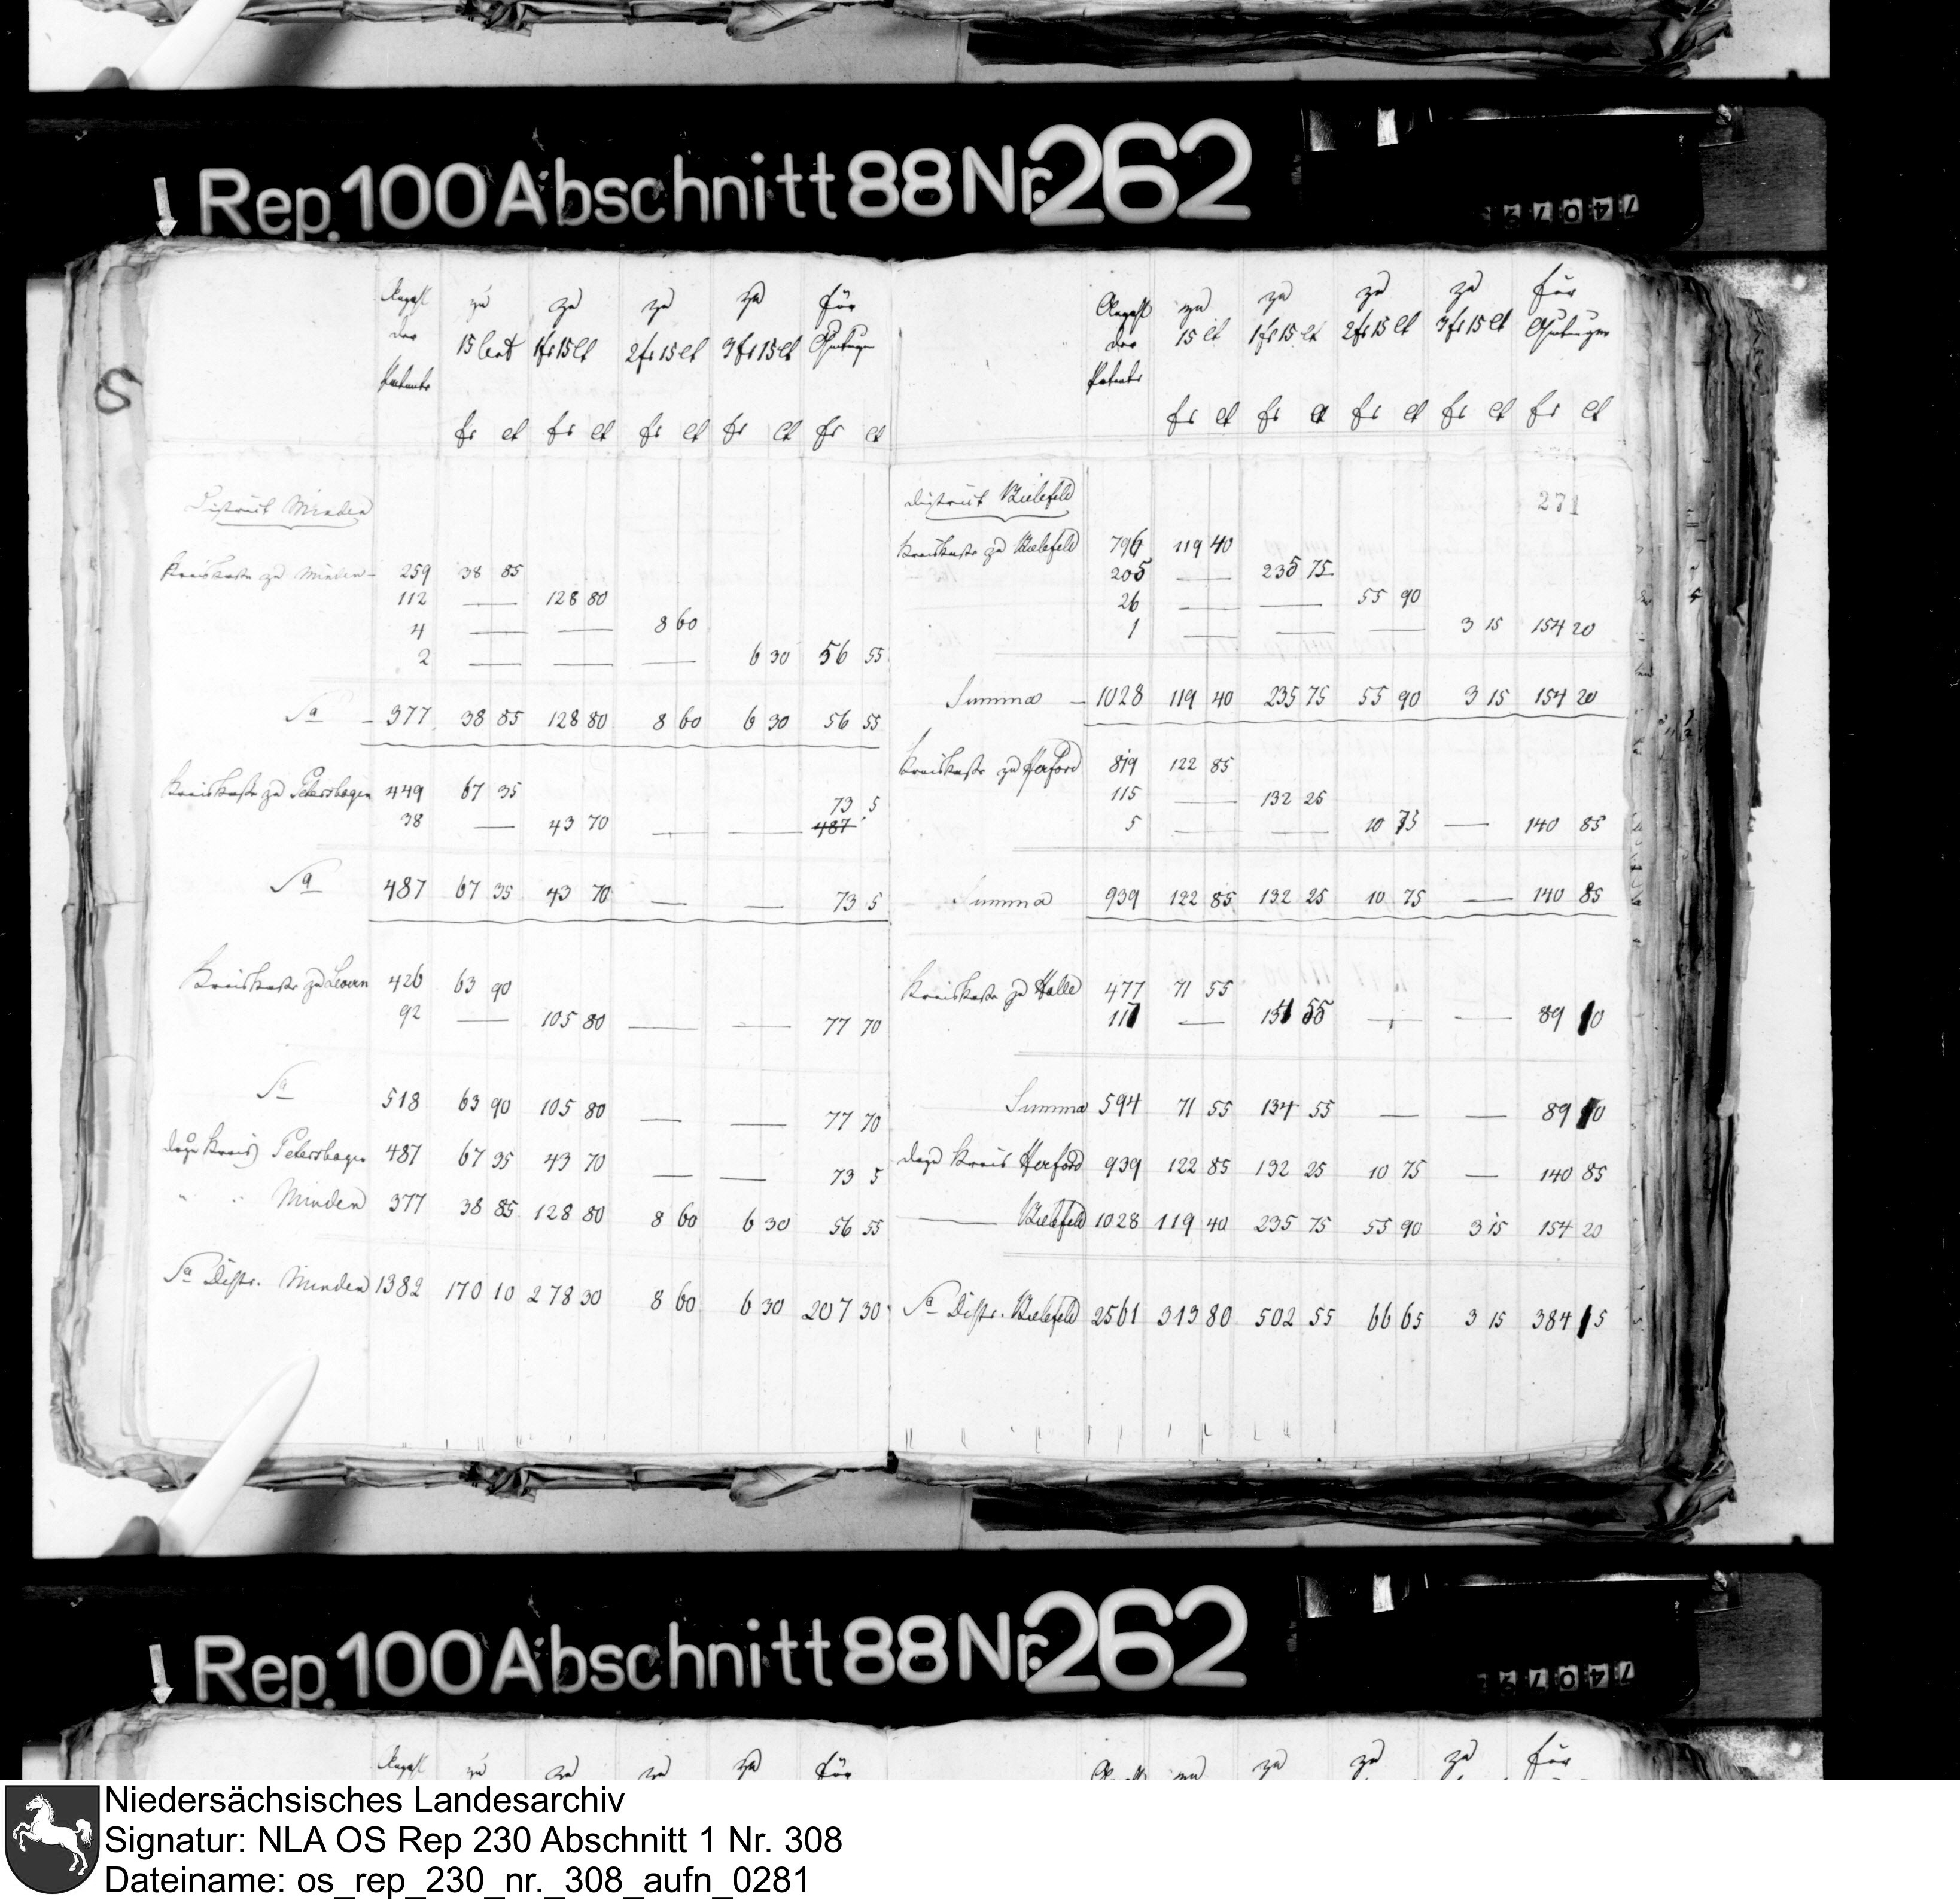 Rep. 100 Abschnitt 88 Nr. 262
Anzahl zu zu zu zu für
der 15 Cent 1 fr 15 Ct 2 fr 15 Ct 3 fr 15 Ct
Patente
fr Ct fr Ct fr Ct fr Ct fr Ct
District Minden
Kreiskasse zu Minden - 259 38 85
112 — 128 80
4 — — 8 60
2 — — — 6 30 56 55
Sa - 377 38 85 128 80 8 60 6 30 56 55
Kreiskasse zu Petershagen 449 67 35
73 5
38 — 43 70 — — 487
Sa 487 67 35 43 70 — — 73 5
Kreiskasse zu Levern 426 63 90
92 — 105 80 — — 77 70
Sa 518 63 90 105 80 — — 77 70
dazu Kreis Petershagen 487 67 35 43 70 — — 73 5
" " Minden 377 38 85 128 80 8 60 6 30 56 55
Sa Distr. Minden 1382 170 10 278 30 8 60 6 30 207 30
Anzahl zu zu zu zu für
der 15 Ct 1 fr 15 Ct 2 fr 15 Ct 3 fr 15 Ct
Patente
fr Ct fr Ct fr Ct fr Ct fr Ct
271
District Bielefeld
Kreiskasse zu Bielefeld 796 119 40
205 — 235 75
26 — — 55 90
1 — — — 3 15 154 20
Summa - 1028 119 40 235 75 55 90 3 15 154 20
Kreiskasse zu Herford 819 122 85
115 — 132 25
5 — — 10 75 — 140 85
Summa 939 122 85 132 25 10 75 — 140 85
Kreiskasse zu Halle 477 71 55
117 — 134 55 — — 89 10
Summa 594 71 55 134 55 — — 89 10
dazu Kreis Herford 939 122 85 132 25 10 75 — 140 85
— Bielefeld 1028 119 40 235 75 55 90 3 15 154 20
Sa Distr. Bielefeld 2561 313 80 502 55 66 65 3 15 384 15
Rep. 100 Abschnitt 88 Nr. 262
Anzahl zu zu zu zu für
zu zu zu zu für
Niedersächsisches Landesarchiv
Signatur: NLA OS Rep 230 Abschnitt 1 Nr. 308
Dateiname: os_rep_230_nr._308_aufn_0281